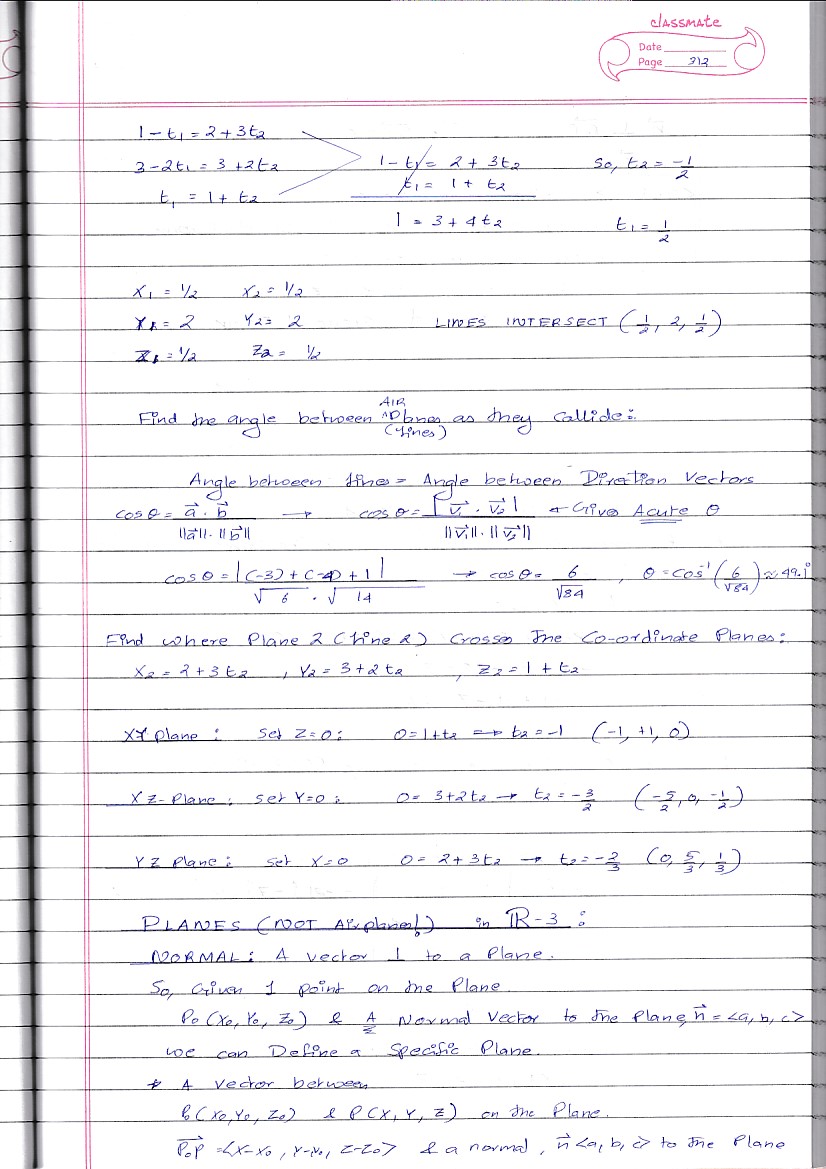 classmate
Date
Page 212
1 - t₁ = 2 + 3t₂
3 - 2t₁ = 3 + 2t₂ 1 - t₁ = 2 + 3t₂ So, t₂ = -1/2
t₁ = 1 + t₂ t₁ = 1 + t₂
1 = 3 + 4t₂ t₁ = 1/2
X₁ = 1/2 X₂ = 1/2
Y₁ = 2 Y₂ = 2 LINES INTERSECT (1/2, 2, 1/2)
Z₁ = 1/2 Z₂ = 1/2
Find the angle between ^AIR Planes as they Collide:
(Lines)
Angle between lines = Angle between Direction Vectors
cos θ = a⃗ · b⃗ / ||a⃗|| · ||b⃗|| → cos θ = |v⃗₁ · v⃗₂| / ||v⃗₁|| · ||v⃗₂|| ← Gives Acute θ
cos θ = |(-3) + (-4) + 1| / √6 · √14 → cos θ = 6/√84 , θ = cos⁻¹(6/√84) ≈ 49.1°
Find where Plane 2 (Line 2) Crosses The Co-ordinate Planes:
X₂ = 2 + 3t₂ , Y₂ = 3 + 2t₂ , Z₂ = 1 + t₂
XY Plane : Set Z=0 : 0 = 1 + t₂ → t₂ = -1 (-1, +1, 0)
XZ-Plane : Set Y=0 : 0 = 3 + 2t₂ → t₂ = -3/2 (-5/2, 0, -1/2)
YZ Plane : Set X=0 0 = 2 + 3t₂ → t₂ = -2/3 (0, 5/3, 1/3)
PLANES (NOT Airplanes!) in ℝ-3 :
NORMAL : A vector ⊥ to a Plane.
So, Given 1 point on the Plane.
P₀ (X₀, Y₀, Z₀) & A Normal Vector to the Plane, n⃗ = <a, b, c>
we can Define a Specific Plane.
* A vector between
P₀(X₀, Y₀, Z₀) & P(X, Y, Z) on the Plane.
P₀P⃗ = <X-X₀, Y-Y₀, Z-Z₀> & a normal, n⃗ <a, b, c> to the Plane